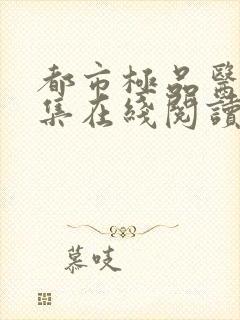 都市極品醫
集在綫閱讀
慕吱